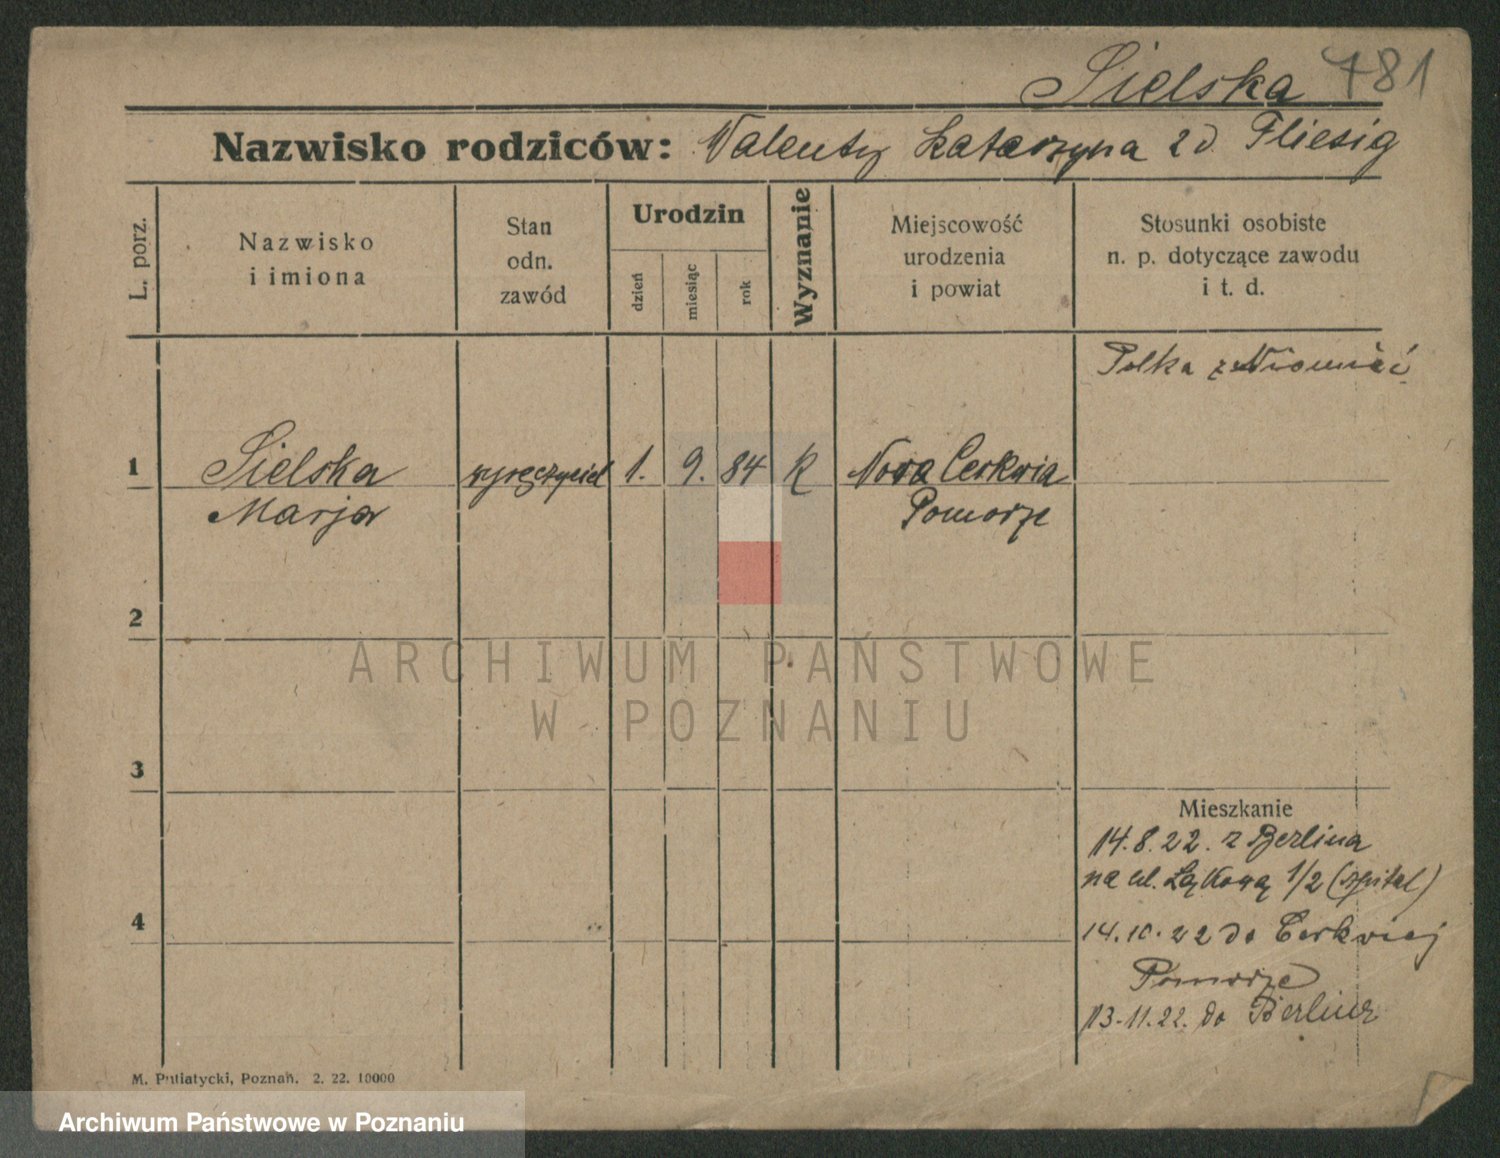 Sielska 781
Nazwisko rodziców: Walenty Katarzyna z d Fliesig
L. porz.
Nazwisko
i imiona
Stan
odn.
zawód
Urodzin
dzień
miesiąc
rok
Wyznanie
Miejscowość
urodzenia
i powiat
Stosunki osobiste
n. p. dotyczące zawodu
i t. d.
Polka z
1 Sielska 1. 9. 84 K Nowa Cerkwia
Marja Pomorze
2
3
4
ARCHIWUM PAŃSTWOWE
W POZNANIU
Mieszkanie
14.8.22. z Berlina
na ul. Łąkową 1/2 (szpital)
14.10.22 do Cerkwiej
Pomorze
13.11.22. do Berlina
M. Putiatycki, Poznań. 2. 22. 10000
Archiwum Państwowe w Poznaniu